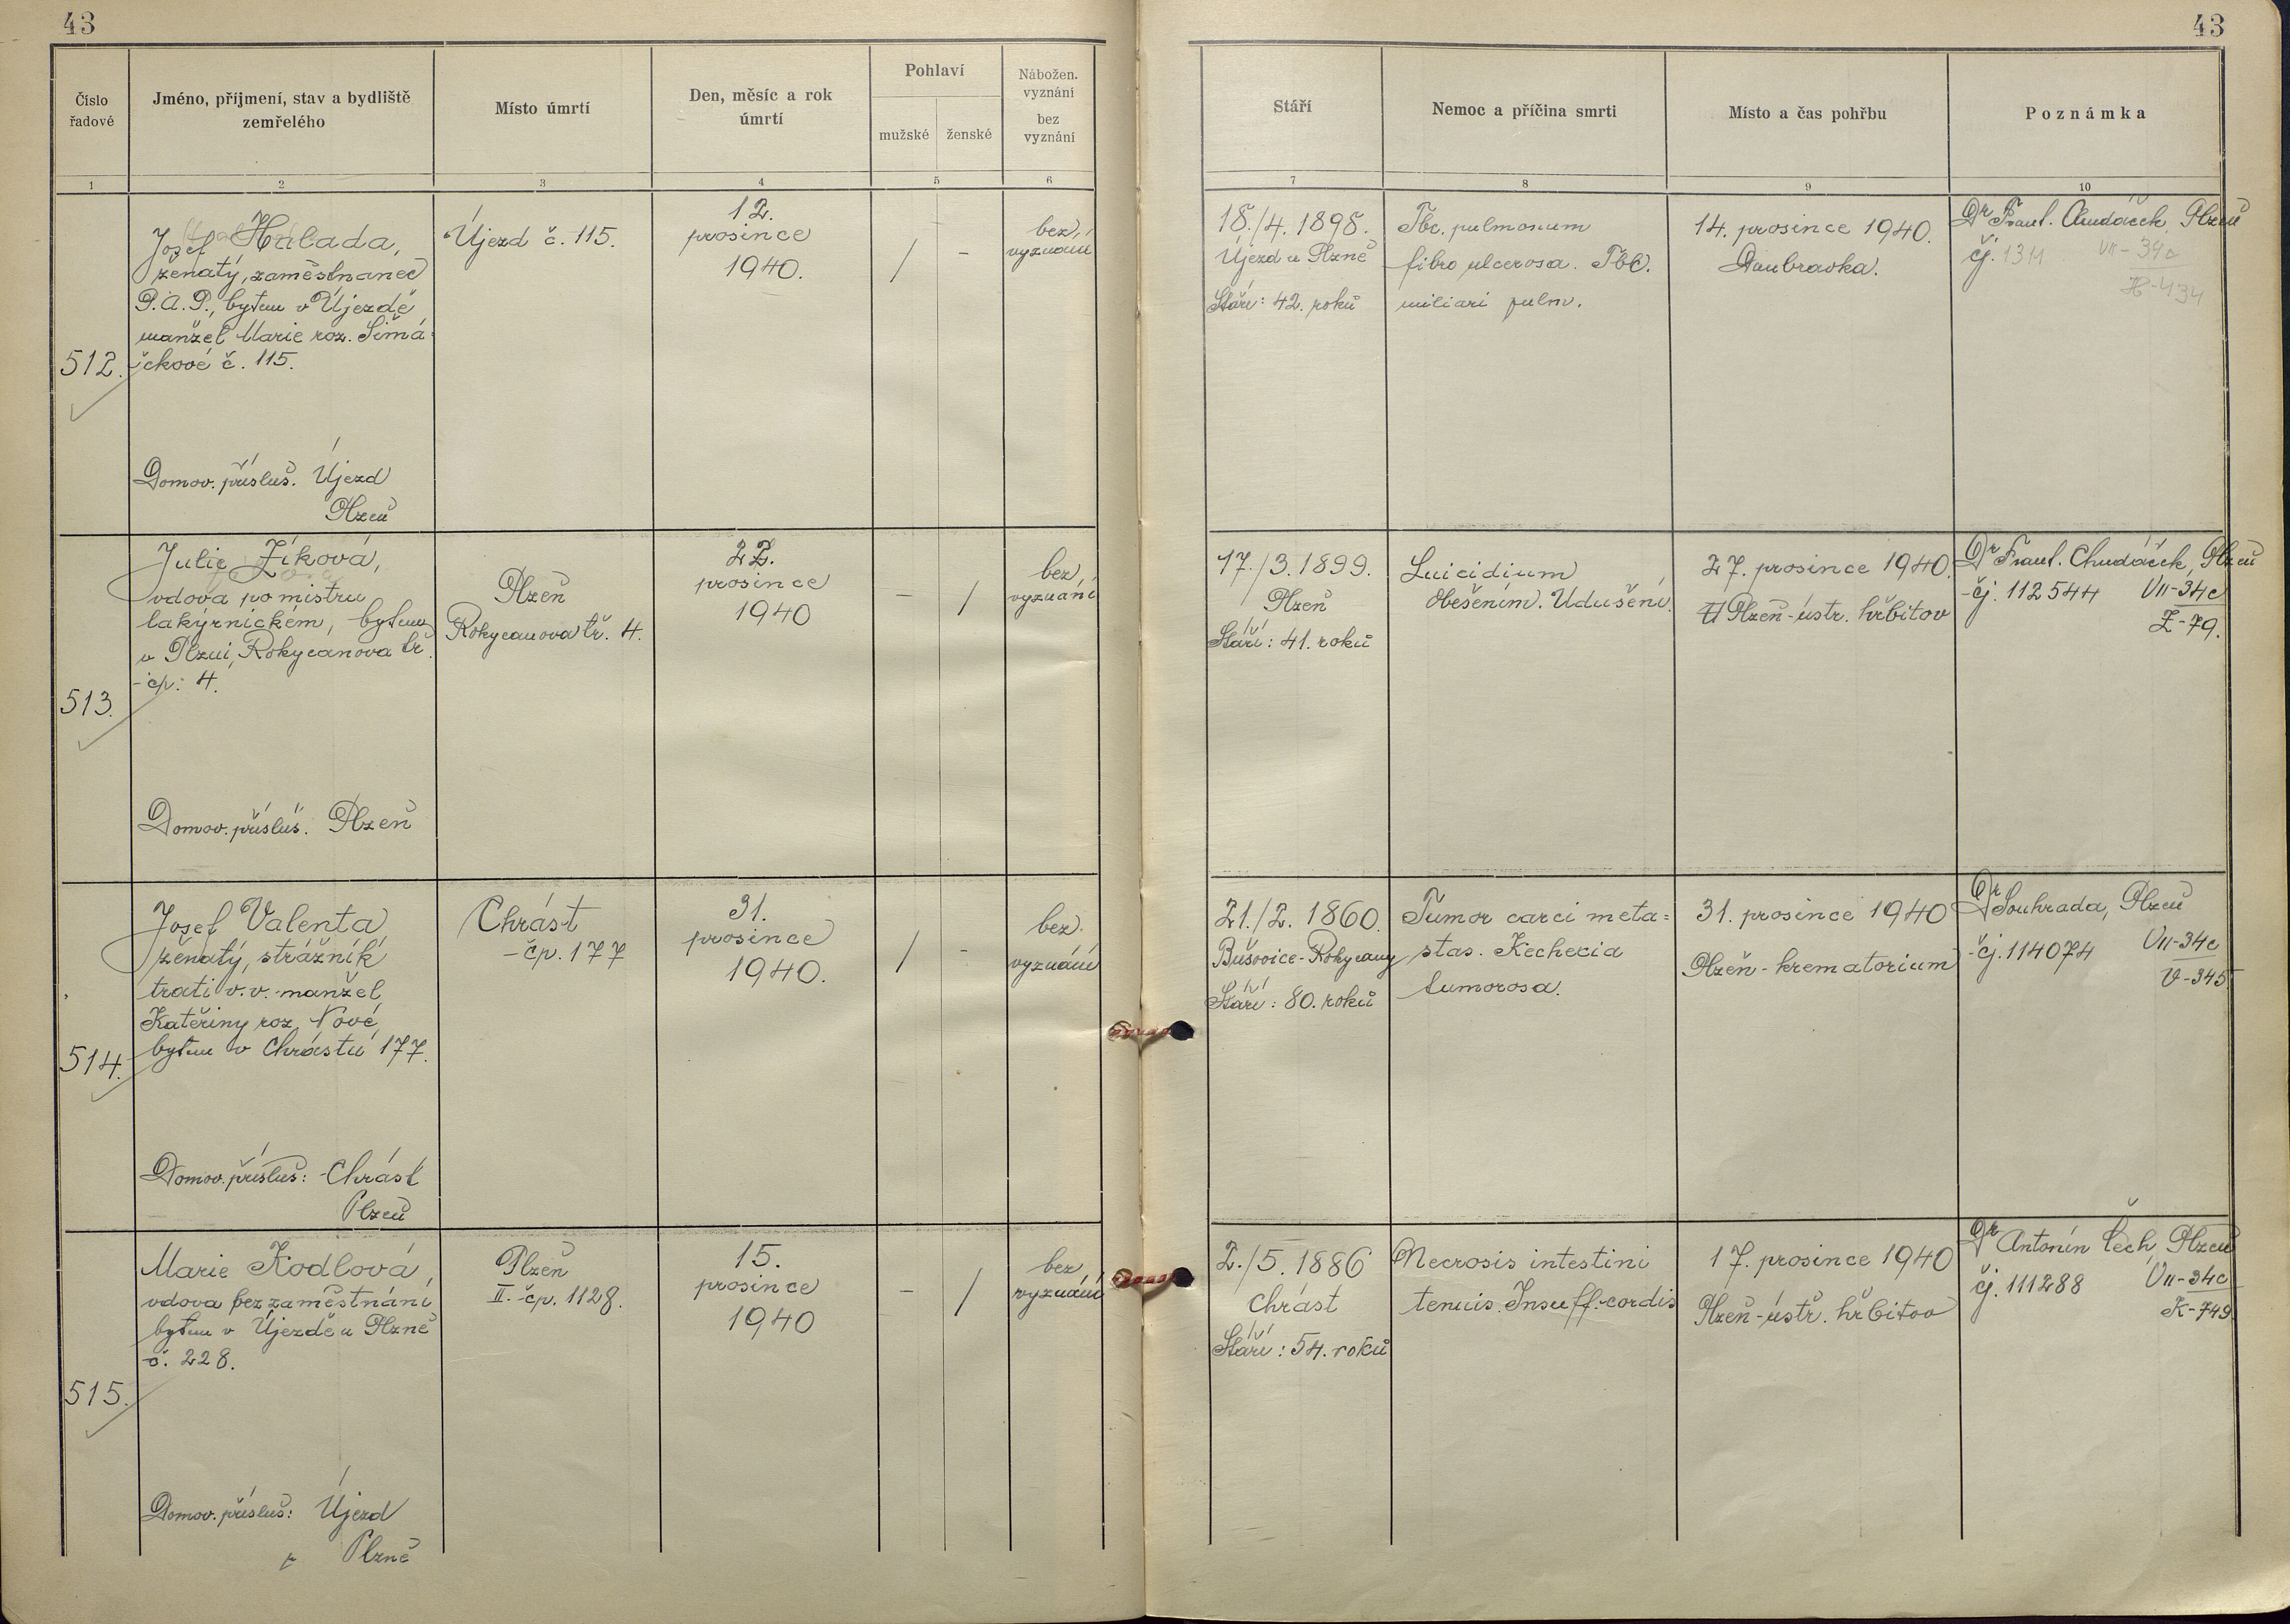 43
43
Číslo
řadové
Jméno, příjmení, stav a bydliště
zemřelého
Místo úmrtí
Den, měsíc a rok
úmrtí
Pohlaví
mužské
ženské
Nábožen.
vyznání
bez
vyznání
Stáří
Nemoc a příčina smrti
Místo a čas pohřbu
Poznámka
1
2
3
4
5
6
7
8
9
10
512.
Josef Halada,
ženatý, zaměstnanec
P.A.P., bytem v Újezdě
manžel Marie roz. Šimá-
čkové č. 115.
Domov. přísluš. Újezd
Plzeň
Újezd č. 115.
12.
prosince
1940.
/
-
bez
vyznání
18./4. 1898.
Újezd u Plzně
Stáří: 42. roků
Tbc. pulmonum
fibro ulcerosa. Tbc.
miliari pulm.
14. prosince 1940.
Doubravka.
Dr Frant. Chudáček, Plzeň
čj. 1311 VII-34c
H-434
513.
Julie Zíková,
vdova po mistru
lakýrnickém, bytem
v Plzni, Rokycanova tř.
čp: 4.
Domov. přísluš. Plzeň
Plzeň
Rokycanova tř. 4.
22.
prosince
1940
-
/
bez
vyznání
17./3. 1899.
Plzeň
Stáří: 41. roků
Suicidium
Oběšením. Udušení.
27. prosince 1940.
Plzeň-ústr. hřbitov
Dr Frant. Chudáček, Plzeň
čj. 112544 VII-34c
Z-79.
514.
Josef Valenta
ženatý, strážník
trati v.v. manžel
Kateřiny roz. Nové,
bytem v Chrástu 177.
Domov. přísluš: Chrást
Plzeň
Chrást
čp. 177
31.
prosince
1940.
/
-
bez
vyznání
21./2. 1860.
Bušovice-Rokycany
Stáří: 80. roků
Tumor carci meta=
stas. Kechecia
tumorosa.
31. prosince 1940
Plzeň-krematorium
Dr Souhrada, Plzeň
čj. 114074 VII-34c
V-345
515.
Marie Kodlová,
vdova bez zaměstnání
bytem v Újezdě u Plzně
č. 228.
Domov. přísluš: Újezd
Plzně
Plzeň
II. čp. 1128.
15.
prosince
1940
-
/
bez
vyznání
2./5. 1886
Chrást
Stáří: 54. roků
Necrosis intestini
tenuis. Insuff. cordis
17. prosince 1940
Plzeň-ústř. hřbitov
Dr Antonín Čech, Plzeň
čj. 111288 VII-34c
K-749